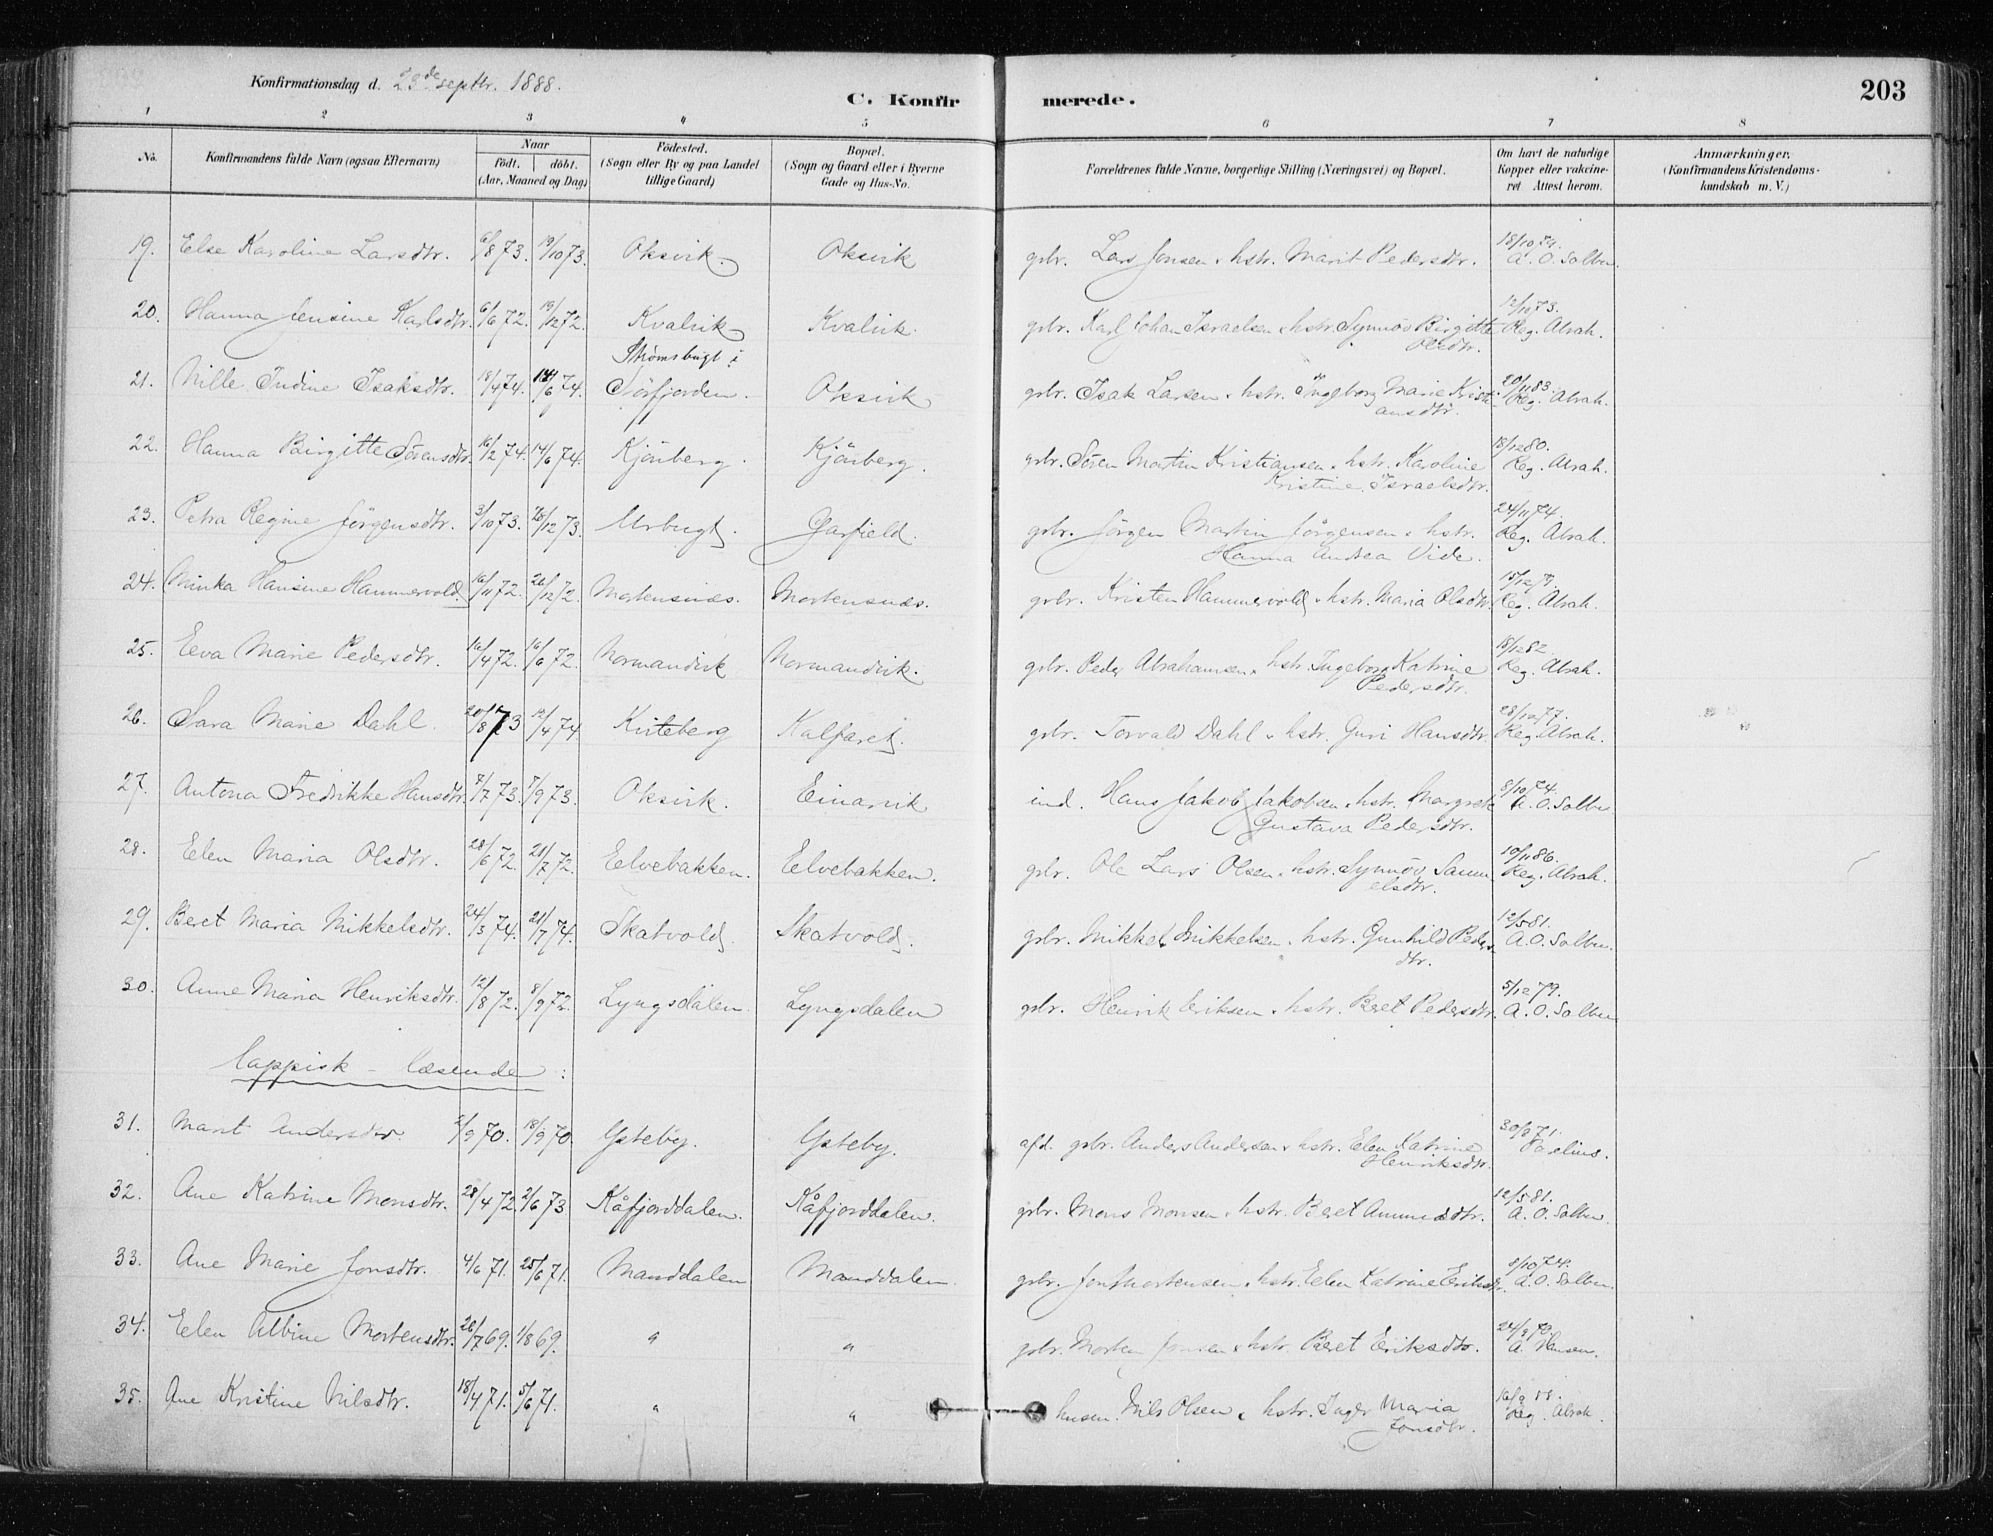 Konfirmationsdag d. 23de septbr. 1888.
C. Konfirmerede.
203
1 2 3 4 5 6 7 8
No.
Konfirmandens fulde Navn (ogsaa Efternavn)
Naar
födt. döbt.
(Aar, Maaned og Dag)
Födested.
(Sogn eller By og paa Landet
tillige Gaard)
Bopæl.
(Sogn og Gaard eller i Byerne
Gade og Hus-No.
Forældrenes fulde Navne, borgerlige Stilling (Næringsvei) og Bopæl.
Om havt de naturlige
Kopper eller vakcine-
ret. Attest herom.
Anmærkninger.
(Konfirmandens Kristendoms-
kundskab m. V.)
19. Else Karoline Larsdtr. 6/8 73. 19/10 73. Oksvik. Oksvik gbr. Lars Jonsen & hstr. Marit Pedersdtr. 18/10 74. A. O. Solbu
20. Hanna Jensine Karlsdtr. 6/6 72. 19/12 72. Kvalvik Kvalvik. gbr. Karl Johan Israelsen & hstr. Synnöv Birgitte Olsdtr. 12/10 73. Reg. Abrah.
21. Nille Indine Isaksdtr. 18/4 74. 14/6 74. Strömsbugt i Sörfjorden. Oksvik gbr. Isak Larsen & hstr. Ingeborg Marie Kristiansdtr. 20/11 83. Reg. Abrah.
22. Hanna Birgitte Sörensdtr. 16/2 74. 14/6 74. Kjörberg. Kjörberg. gbr. Sören Martin Kristiansen & hstr. Karoline Kristine Israelsdtr. 18/12 80. Reg. Abrah.
23. Petra Regine Jörgensdtr. 3/10 73. 28/12 73. Urbugt. Garfield. gbr. Jörgen Martin Jörgensen & hstr. Hanna Andrea Vide. 24/11 74. Reg. Abrah.
24. Minka Hansine Hammervold. 16/11 72. 26/12 72. Mortensnæs. Mortensnæs. gbr. Kristen Hammervold & hstr. Maria Olsdtr. 15/12 79. Reg. Abrah.
25. Eeva Marie Pedersdtr. 16/4 72. 16/6 72. Normandvik Normandvik. gbr. Peder Abrahamsen & hstr. Ingeborg Katrine Pedersdtr. 18/12 82. Reg. Abrah.
26. Sara Marie Dahl. 20/8 73 12/4 74. Kviteberg Kalfaret. gbr. Torvald Dahl & hstr. Guri Hansdtr. 28/12 77. Reg. Abrah.
27. Antona Fredrikke Hansdtr. 8/7 73. 7/9 73. Oksvik. Einarvik ind. Hans Jakob Jakobsen & hstr. Margrete Gustava Pedersdtr. 9/10 74. A. O. Solbu
28. Elen Maria Olsdtr. 28/6 72. 21/7 72. Eelvebakken. Eelvebakken. gbr. Ole Lars Olsen & hstr. Synnöv Samuelsdtr. 10/11 86. Reg. Abrah.
29. Beret Maria Mikkelsdtr. 24/3 74. 21/7 74. Skatvold. Skatvold. gbr. Mikkel Mikkelsen & hstr. Gunhild Pedersdtr. 12/5 81. A. O. Solbu.
30. Anne Maria Henriksdtr. 12/8 72. 8/9 72. Lyngsdalen. Lyngsdalen gbr. Henrik Eriksen & hstr. Beret Pedersdtr. 5/12 79. A. O. Solbu
lappisk - læsende :
31. Marit Andersdtr. 2/9 70. 18/9 70. Ysteby. Ysteby. afd. gbr. Anders Andersen & hstr. Elen Katrine Henriksdtr. 30/8 71.
32. Ane Katrine Monsdtr. 28/4 72. 2/6 73 Kåfjorddalen. Kåfjorddalen. gbr. Mons Monsen & hstr. Beret Ammundsdtr. 12/5 81. A. O. Solbu.
33. Ane Marie Jonsdtr. 4/6 71. 25/6 71. Manddalen Manddalen. gbr. Jon Mortensen & hstr. Elen Katrine Eriksdtr. 9/10 74. A. O. Solbu.
34. Elen Albine Mortensdtr. 26/7 69. 1/8 69. " " gbr. Morten Jonsen & hstr. Beret Eriksdtr. A. Hansen.
35. Ane Kristine Nilsdtr. 18/4 71. 5/6 71. " " husm. Nils Olsen & hstr. Inger Maria Jonsdtr. 16/9 88. Reg. Abrah.